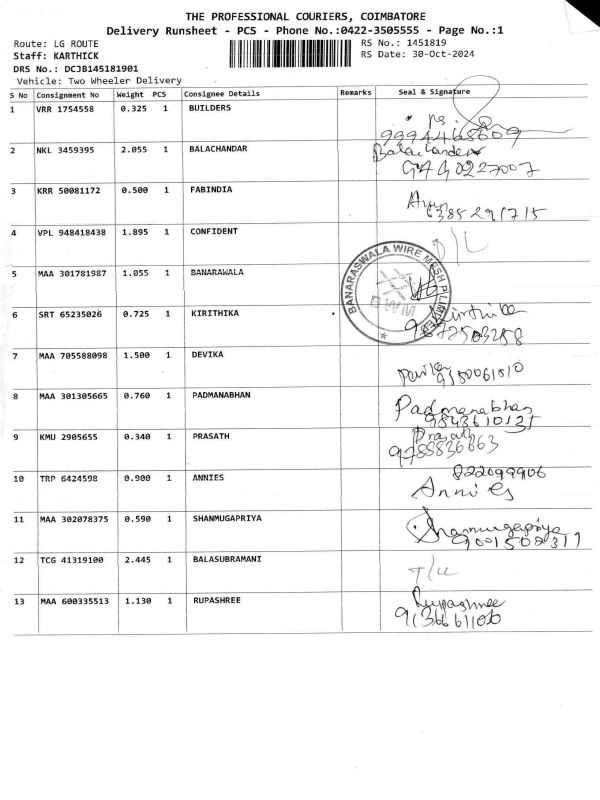 THE PROFESSIONAL COURIERS, COIMBATORE
Delivery Runsheet - PCS - Phone No.:0422-3505555 - Page No.:1
Route: LG ROUTE RS No.: 1451819
Staff: KARTHICK RS Date: 30-Oct-2024
DRS No.: DCJB145181901
Vehicle: Two Wheeler Delivery
S No Consignment No Weight PCS Consignee Details Remarks Seal & Signature
1 VRR 1754558 0.325 1 BUILDERS
9994468609
2 NKL 3459395 2.055 1 BALACHANDAR Balachander
3 KRR 50081172 0.500 1 FABINDIA
6385291715
4 VPL 948418438 1.895 1 CONFIDENT D/L
BANARASWALA WIRE MESH P LIMITED
BWM
5 MAA 301781987 1.055 1 BANARAWALA
6 SRT 65235026 0.725 1 KIRITHIKA Kirithika
9872503258
7 MAA 705588098 1.500 1 DEVIKA
8 MAA 301305665 0.760 1 PADMANABHAN Padmanabhan
9843610135
9 KMU 2905655 0.340 1 PRASATH Prasath
9788836663
10 TRP 6424598 0.900 1 ANNIES 822099906
Annies
11 MAA 302078375 0.590 1 SHANMUGAPRIYA Shanmugapriya
12 TCG 41319100 2.445 1 BALASUBRAMANI
13 MAA 600335513 1.130 1 RUPASHREE Rupashree